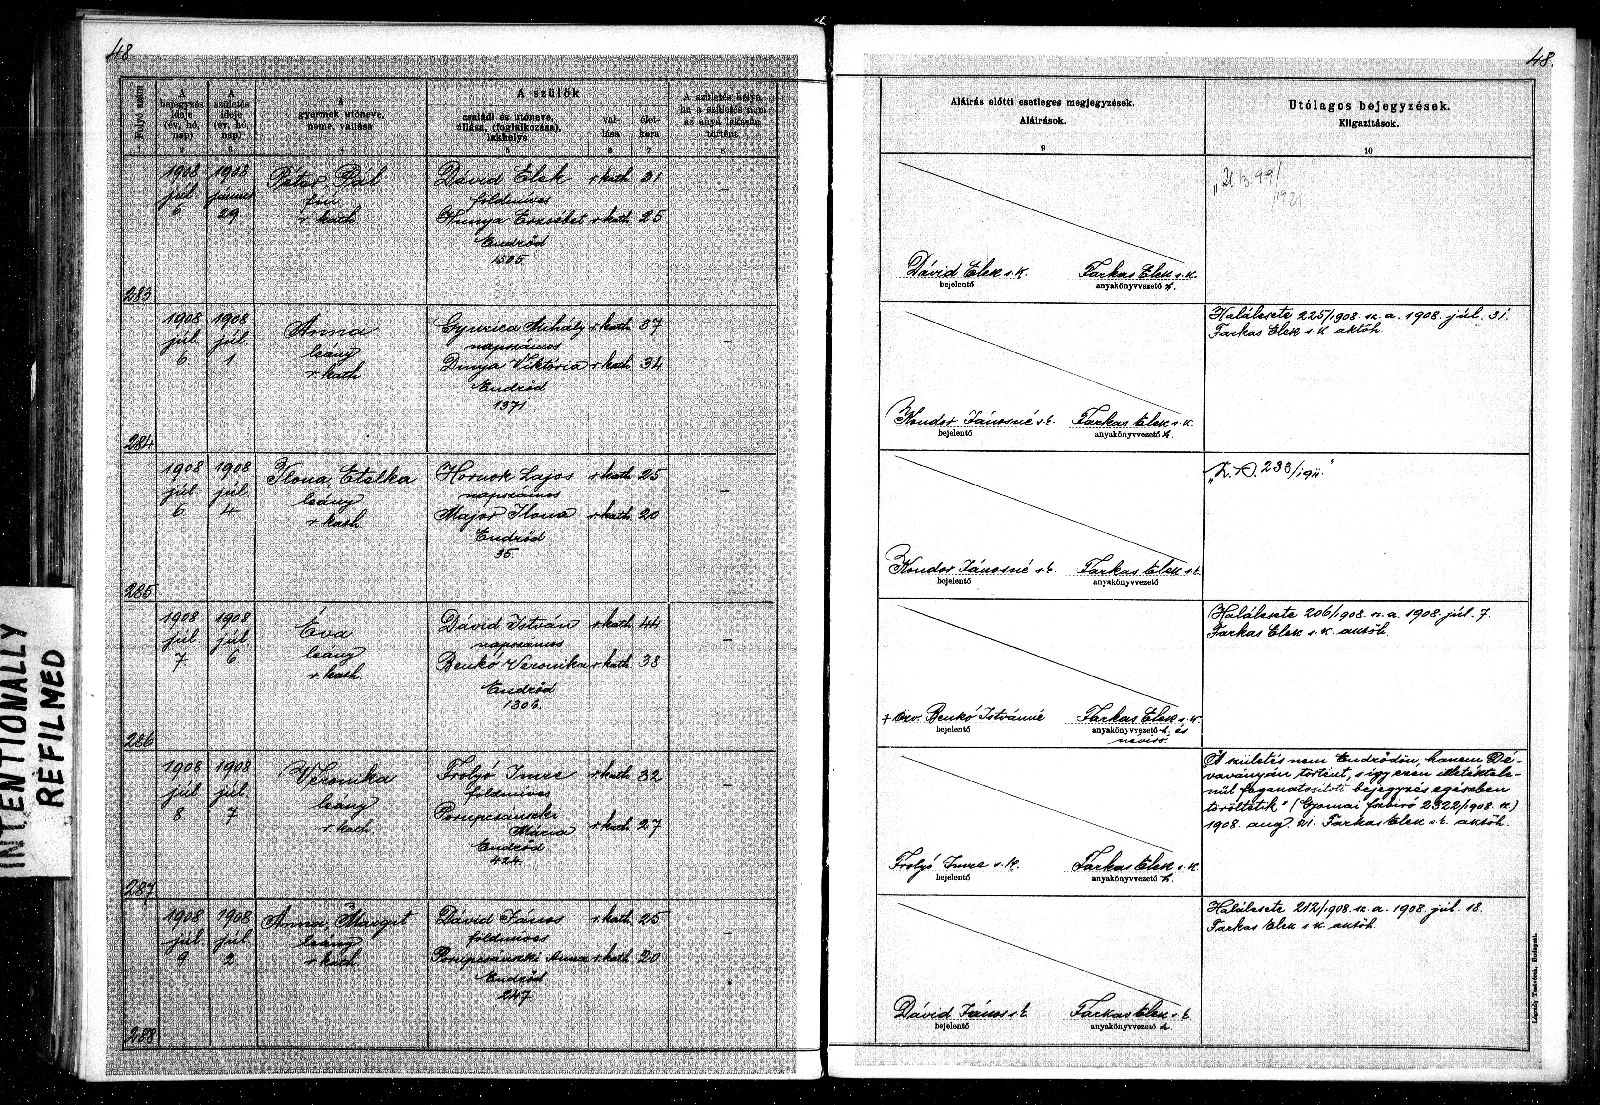 48
48.
Folyó szám
A bejegyzés ideje (év, hó, nap)
A születés ideje (év, hó, nap)
A gyermek utóneve, neme, vallása
A szülők
családi és utóneve, állása, (foglalkozása), lakhelye
vallása
életkora
A születés helye, ha a születés nem az anya lakásán történt.
Aláirás előtti esetleges megjegyzések.
Aláirások.
Utólagos bejegyzések.
Kiigazitások.
9
10
283
1908 júl. 6
1908 június 29
Péter, Pál
fiú
r. kath.
Dávid Elek r. kath. 31
földmíves
Hunya Erzsébet r. kath. 25
Endrőd
1505.
Dávid Elek s. k.
bejelentő
Farkas Elek s. k.
anyakönyvvezető h.
284
1908 júl. 6
1908 júl. 1
Anna
leány
r. kath.
Gyurica Mihály r. kath. 37
napszámos
Dinya Viktória r. kath. 34
Endrőd
1371
Kondor Jánosné s. k.
bejelentő
Farkas Elek s. k.
anyakönyvvezető h.
Halálesete 225/1908. sz. a. 1908. júl. 31.
Farkas Elek s. k. aktöh.
285
1908 júl. 6
1908 júl. 4
Ilona, Etelka
leány
r. kath.
Hornok Lajos r. kath. 25
napszámos
Major Ilona r. kath. 20
Endrőd
35.
Kondor Jánosné s. k.
bejelentő
Farkas Elek s. k.
anyakönyvvezető
286
1908 júl. 7
1908 júl. 6
Éva
leány
r. kath.
Dávid István r. kath. 44
napszámos
Benkó Veronika r. kath. 38
Endrőd
1306.
+ özv. Benkó Istvánné
bejelentő
Farkas Elek s. k.
anyakönyvvezető h. és
névíró
Halálesete 206/1908. sz. a. 1908. júl. 7.
Farkas Elek s. k. aktöh.
287
1908 júl. 8
1908 júl. 7
Veronika
leány
r. kath.
Frolyó Imre r. kath. 32
földmíves
Mária r. kath. 27
Endrőd
424.
Frolyó Imre s. k.
bejelentő
Farkas Elek s. k.
anyakönyvvezető h.
"A születés nem Endrődön, hanem Dé-
vaványán történt, s így ezen illetéktele-
nül foganatosított bejegyzés egészében
töröltetik" (Gyomai főszbíró 2322/1908. sz.)
1908. aug. 21. Farkas Elek s. k. aktöh.
288
1908 júl. 9
1908 júl. 2
Anna, Margit
leány
r. kath.
Dávid János r. kath. 25
földmíves
Anna r. kath. 20
Endrőd
247
Dávid János s. k.
bejelentő
Farkas Elek s. k.
anyakönyvvezető h.
Halálesete 212/1908. sz. a. 1908. júl. 18.
Farkas Elek s. k. aktöh.
INTENTIONALLY
REFILMED